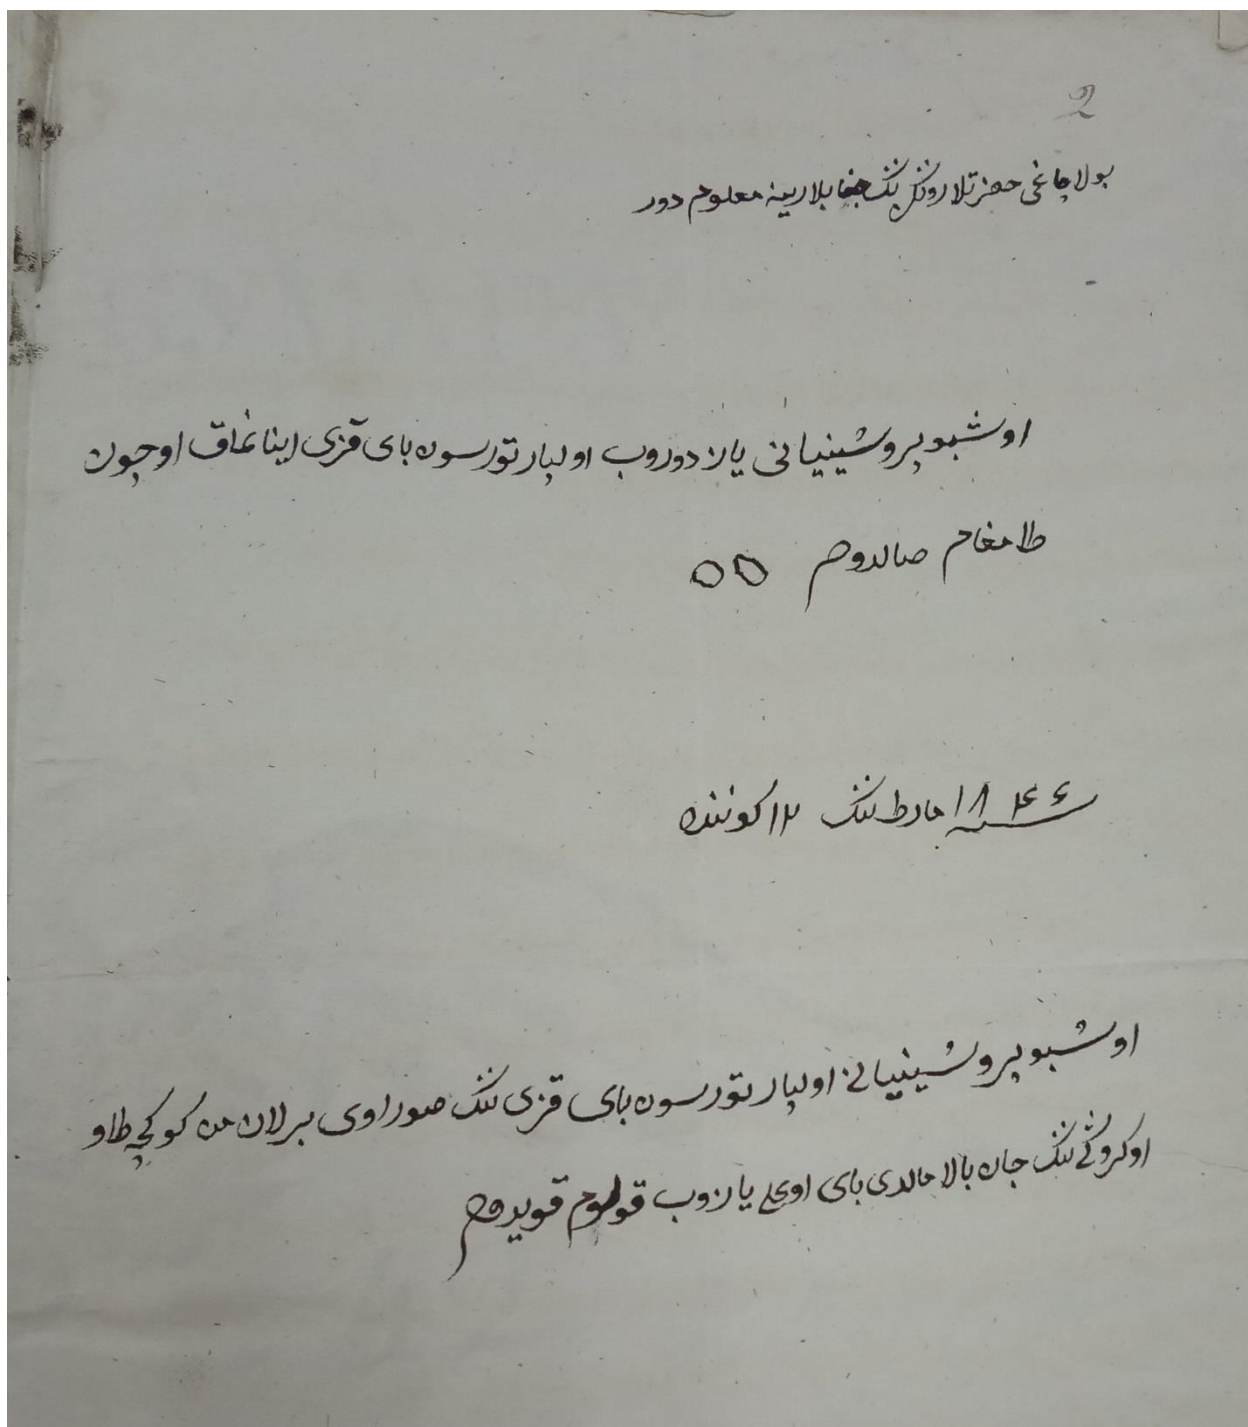 2
بولاچاغی حضرتلارونكزننک جنابلارینه معلوم دور
اوشبو پروشینیانی یازدوروب اولپار تورسون بای قزی اینانماق اوچون
طامغام صالدوم
سنه ۱۸۴۶ مارط ننک ۱۲ کوننده
اوشبو پروشینیانی اولپار تورسون بای قزی ننک صوراوی برلان من کوکچه طاو
اوکروکی ننک جان بالا مالدی بای اوغلی یازوب قولوم قویدوم